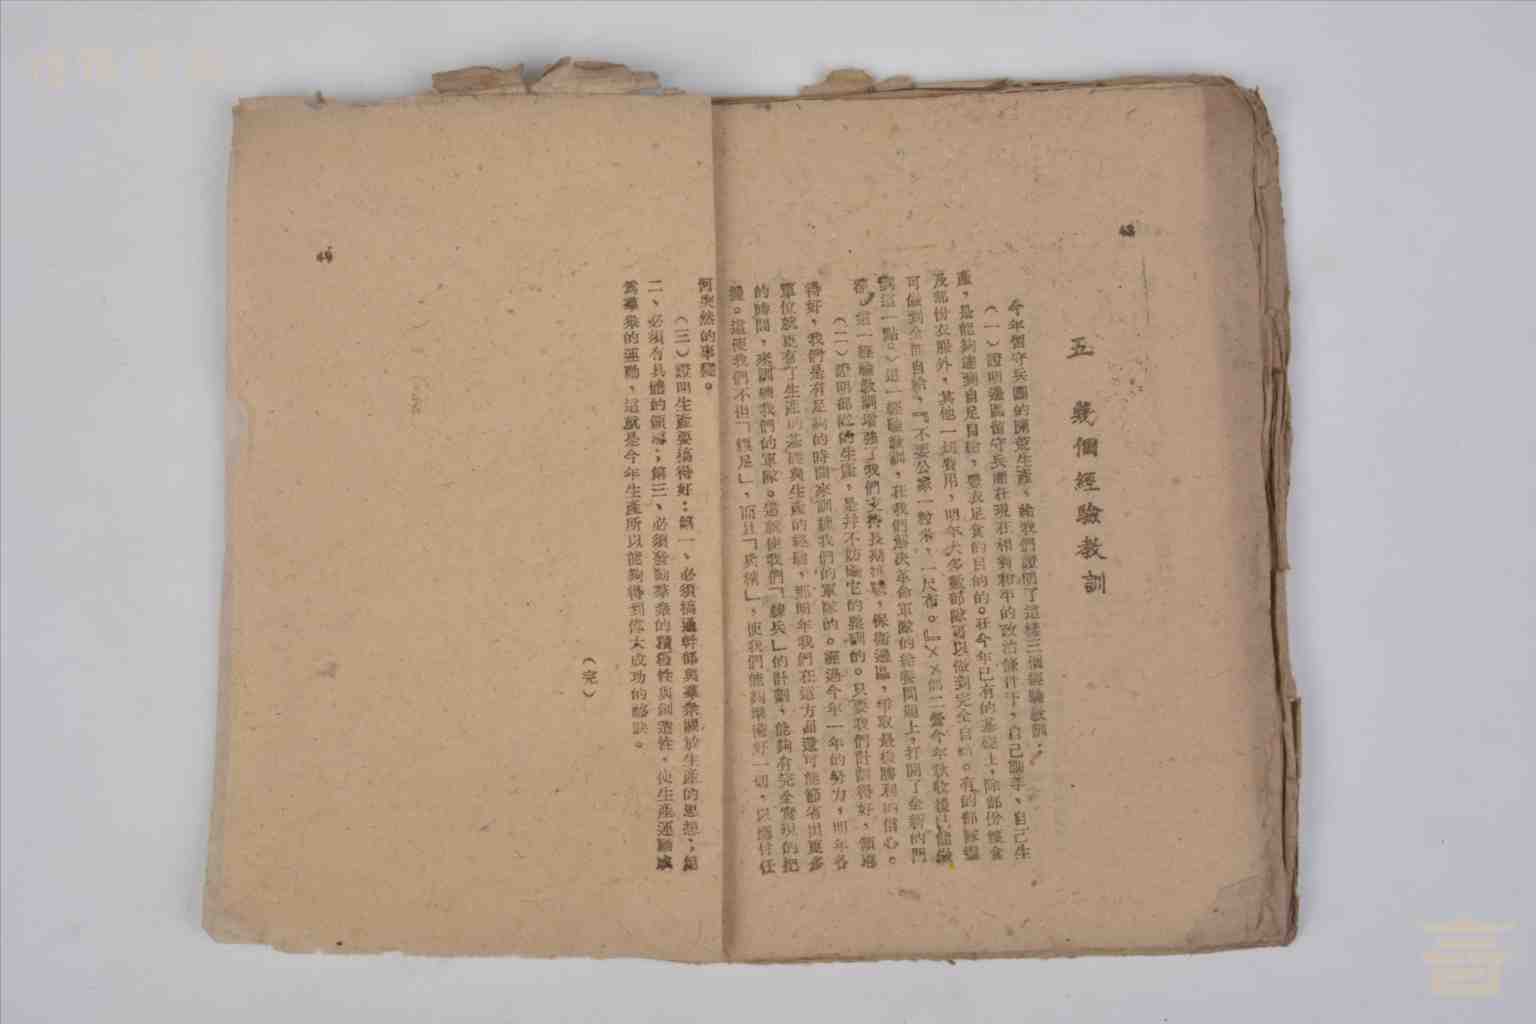 48
五 幾個經驗教訓
今年留守兵團的開荒生產，給我們證明了這樣三個經驗教訓：
（一）證明邊區留守兵團在現在相對和平的政治條件下，自己動手、自己生
產，是能夠達到自足自給，豐衣足食的目的的。在今年已有的基礎上，除部份糧食
及部份衣服外，其他一切費用，明年大多數部隊可以做到完全自給。有的部隊還
可做到全部自給，『不要公家一粒米，一尺布。』（××團二營今年秋收後已能做
到這一點。）這一經驗教訓，在我們解決革命軍隊的給養問題上，打開了全新的門
這一經驗教訓增強了我們支持長期抗戰，保衛邊區，爭取最後勝利的信心。
（二）證明部隊的生產，是并不妨礙它的整訓的。只要我們計劃得好，領導
得好，我們是有足夠的時間來訓練我們的軍隊的。經過今年一年的努力，明年各
單位就更有了生產的基礎與生產的經驗，那明年我們在這方面還可能節省出更多
的時間，來訓練我們的軍隊。這就使我們「練兵」的計劃，能夠有完全實現的把
握。這使我們不但「糧足」，而且「兵精」，使我們能夠準備好一切，以應付任
何突然的事變。
（三）證明生產要搞得好：第一、必須搞通幹部與羣衆關於生產的思想；第
二、必須有具體的領導；第三、必須發動羣衆的積極性與創造性，使生產運動成
爲羣衆的運動，這就是今年生產所以能夠得到偉大成功的秘訣。
（完）
49